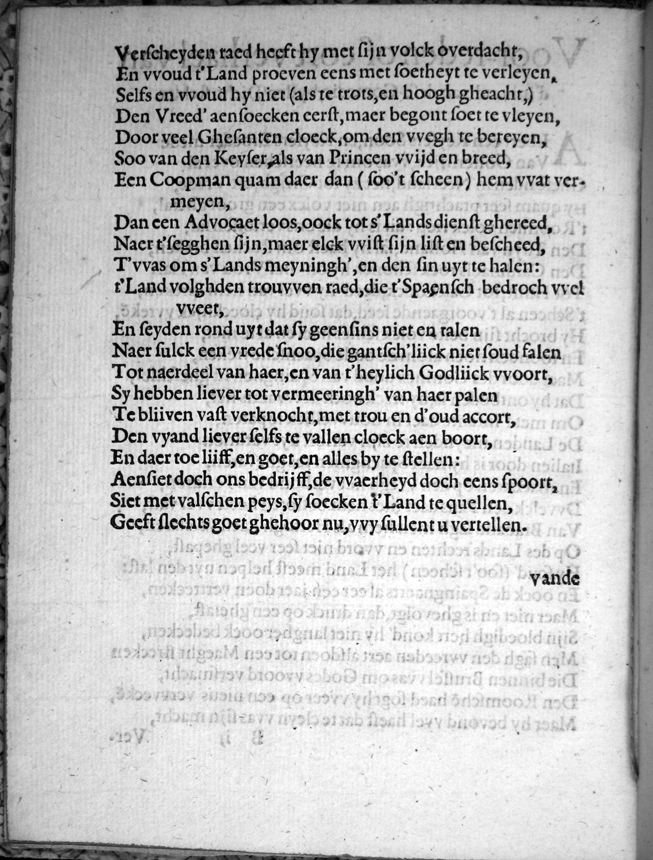 Verscheyden raed heeft hy met sijn volck overdacht,
En vvoud t'Land proeven eens met soetheyt te verleyen,
Selfs en vvoud hy niet (als te trots, en hoogh gheacht,)
Den Vreed' aensoecken eerst, maer begont soet te vleyen,
Door veel Ghesanten cloeck, om den vvegh te bereyen,
Soo van den Keyser, als van Princen vvijd en breed,
Een Coopman quam daer dan ( soo't scheen) hem vvat ver-
meyen,
Dan een Advocaet loos, oock tot s'Lands dienst ghereed,
Naer t'segghen sijn, maer elck vvist sijn list en bescheed,
T'vvas om s'Lands meyningh', en den sin uyt te halen:
t'Land volghden trouvven raed, die t'Spaensch bedroch vvel
vveet,
En seyden rond uyt dat sy geensins niet en ralen
Naer sulck een vrede snoo, die gantsch'liick niet soud falen
Tot naerdeel van haer, en van t'heylich Godliick vvoort,
Sy hebben liever tot vermeeringh' van haer palen
Te bliiven vast verknocht, met trou en d'oud accort,
Den vyand liever selfs te vallen cloeck aen boort,
En daer toe liiff, en goet, en alles by te stellen:
Aensiet doch ons bedrijff, de vvaerheyd doch eens spoort,
Siet met valschen peys, sy soecken t'Land te quellen,
Geeft slechts goet ghehoor nu, vvy sullent u vertellen.
vande